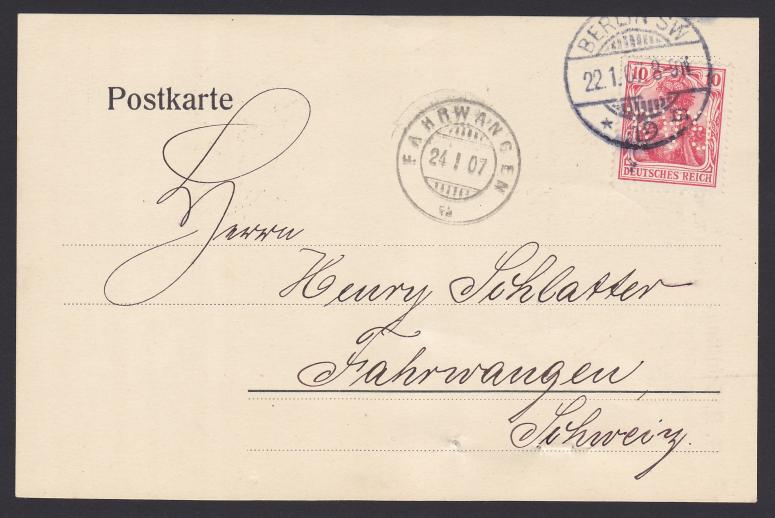 BERLIN SW
22.1.07. 8-9N
10 10
DEUTSCHES REICH
Postkarte
FAHRWANGEN
24 I 07
Herrn
Henry Schlatter
Fahrwangen,
Schweiz.